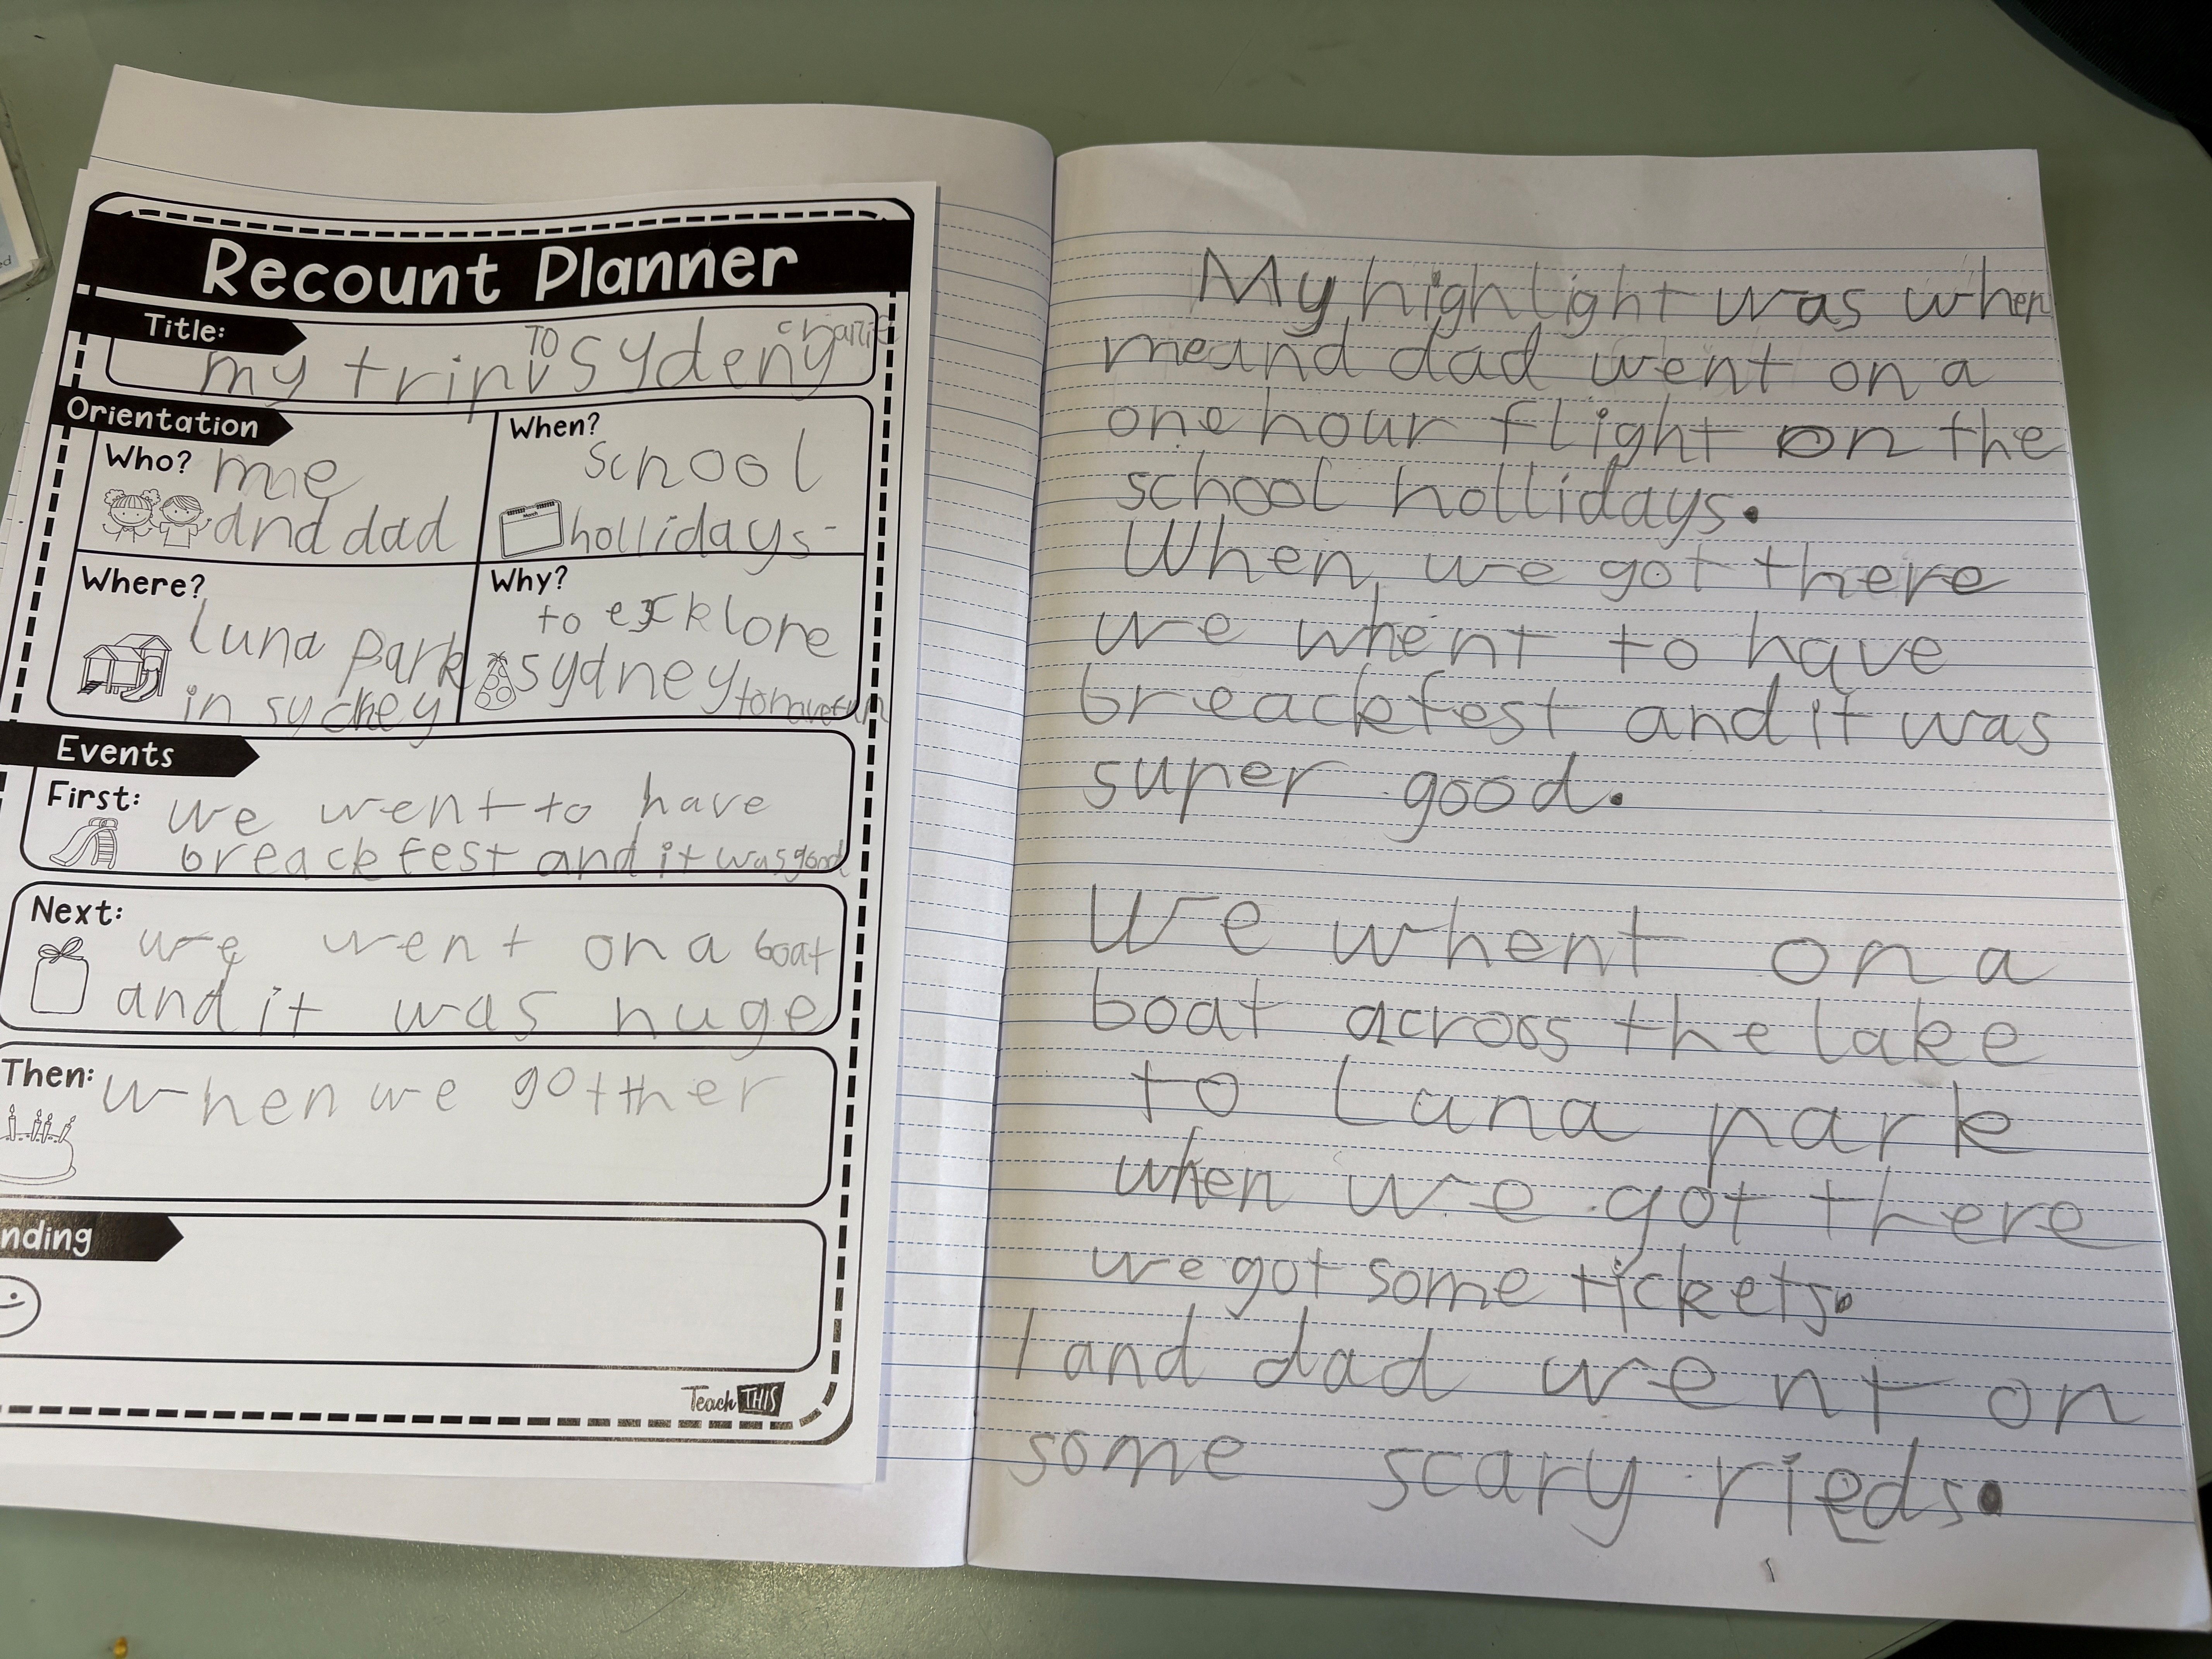 Recount Planner
Title:
my trip TO sydeny
Orientation
Who? me
and dad
When?
school
hollidays
Where?
Luna park
in sydney
Why?
to excklore
sydney to have fun
Events
First: we went to have
breackfest and it was good
Next:
we went on a boat
and it was huge
Then: when we got ther
nding
Teach THIS
My highlight was when
me and dad went on a
one hour flight on the
school hollidays.
When we got there
we whent to have
breackfest and it was
super good.
We whent on a
boat across the lake
to Luna park
when we got there
we got some tickets.
I and dad went on
some scary rieds.